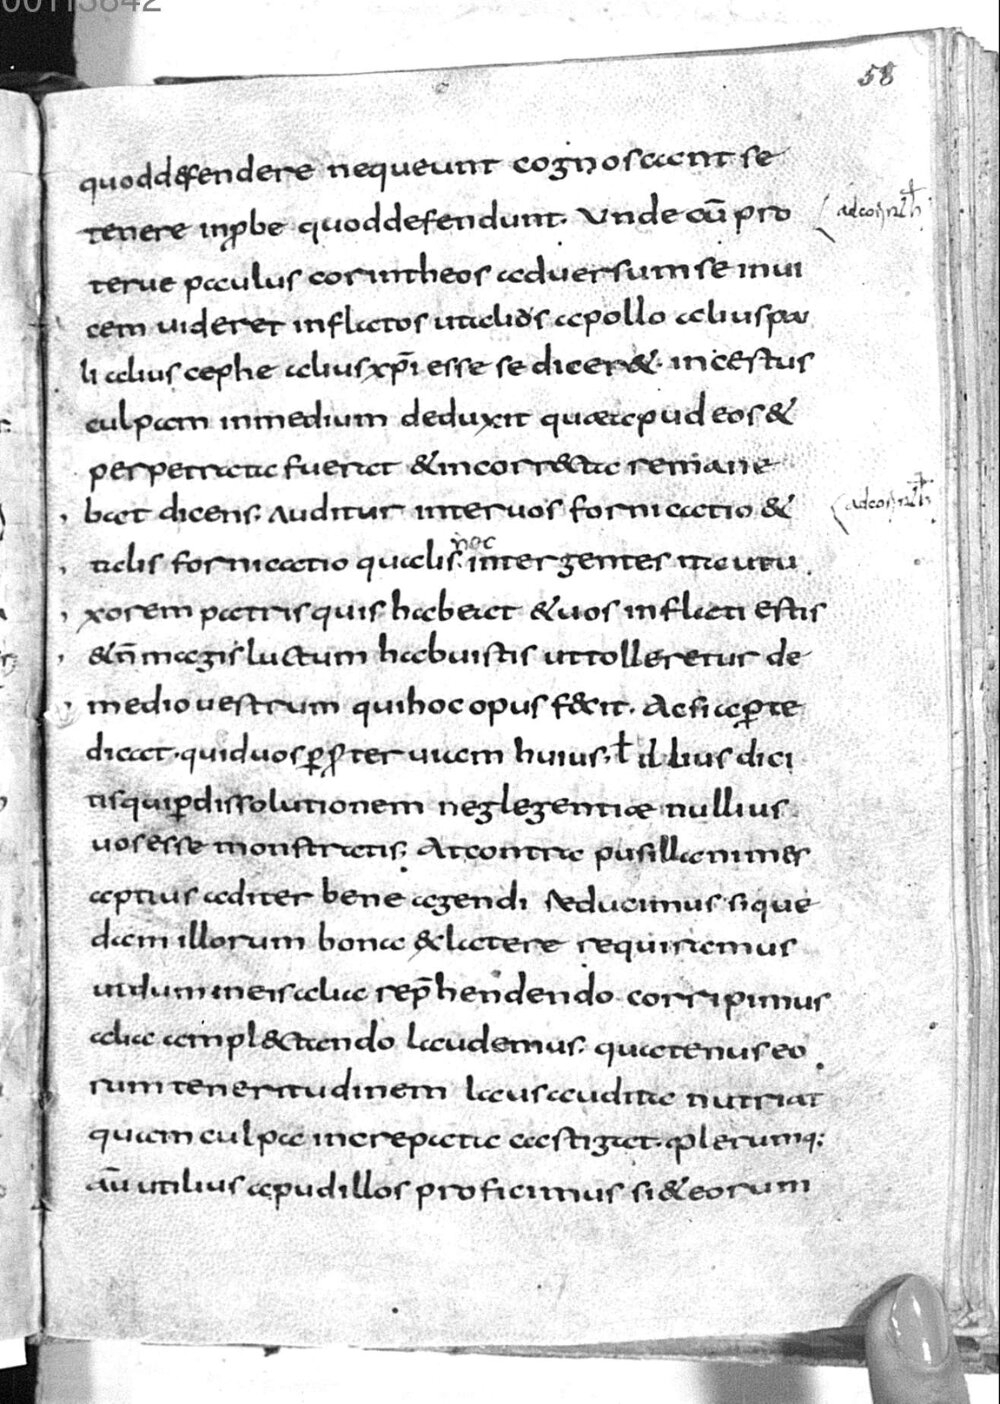 00113842
58
quoddefendere nequeunt cognoscant se
tenere inp̱be quoddefendunt. Vnde cū pro
terue paulus corintheos aduersum se inui
cem uideret inflatos utalios apollo aliuspau
li alius cephe aliusxp̄i esse se dicer&. incestus
culpam inmedium deduxit quæapud eos &
perpetrata fuerat &incorrecta remane
bat dicens; Auditur interuos fornicatio &
talis fornicatio qualis nec inter gentes ita utu
xorem patris quis habeat &uos inflati estis
&n̄ magis luctum habuistis uttolleretur de
medio uestrum quihoc opus fecit. Acsi ap̱te
dicat. quiduos p̱p̱ter uitam huius. ł illius dici
tisquip̱dissolutionem neglegentiæ nullius
uosesse monstratis; Atcontra pusillanimes
aptius aditer bene agendi reducimus si que
dam illorum bona &latere requiramus
utdum ineis alia rep̄hendendo corripimus
alia amplectando laudemus. quatenus eo
rum teneritudinem laus audita nutriat
quam culpa increpata castigat. plerumq;
aū utilius apudillos proficimus si &eorum
ad corinth
ad corinth